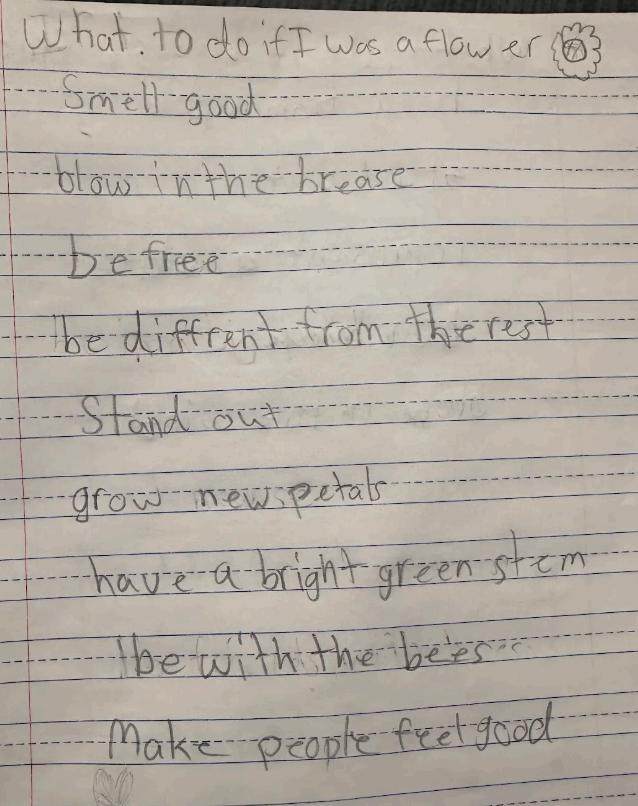 What. to do if I was a flower
Smell good
blow in the brease
be free
be diffrent from the rest
Stand out
grow new petals
have a bright green stem
be with the bees
Make people feel good